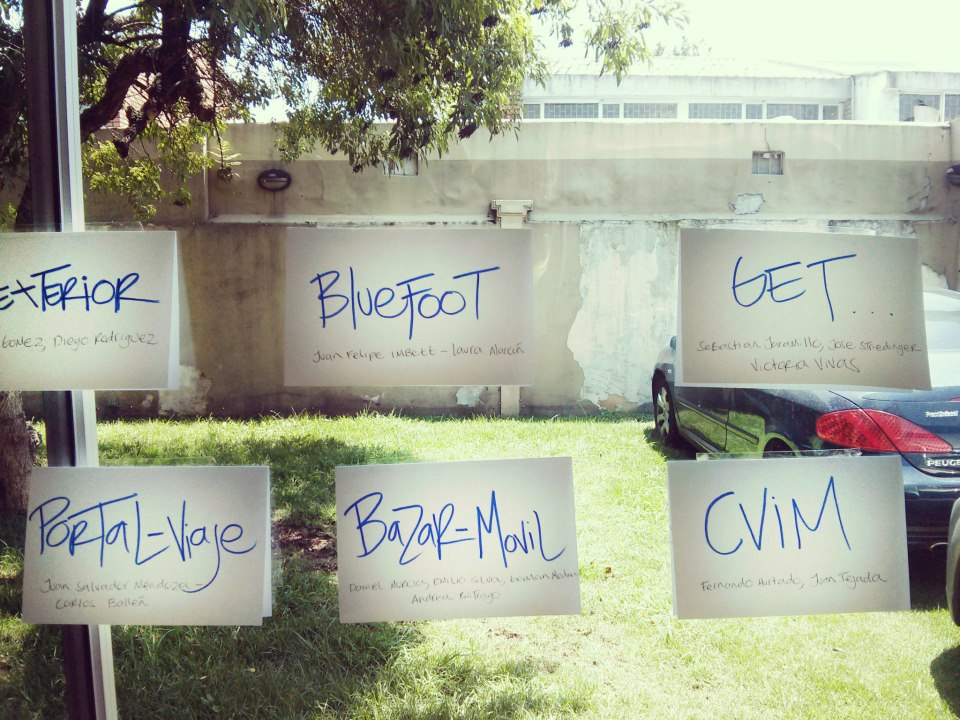 EXTERIOR
Gomez, Diego Rodriguez
BlueFOOT
Juan Felipe IMBETT - Laura Alarcón
GET...
Sebastian Jaramillo, Jose Striedinger
Victoria Vivas
PORTAL-Viaje
Juan Salvador Mendoza -
Carlos Balleñ
BAZAR-MOVIL
Daniel Murcia, EMILIO Silva,
Andrea Buitrago
CViM
Fernando Hurtado, Juan Tejada
PEUGE